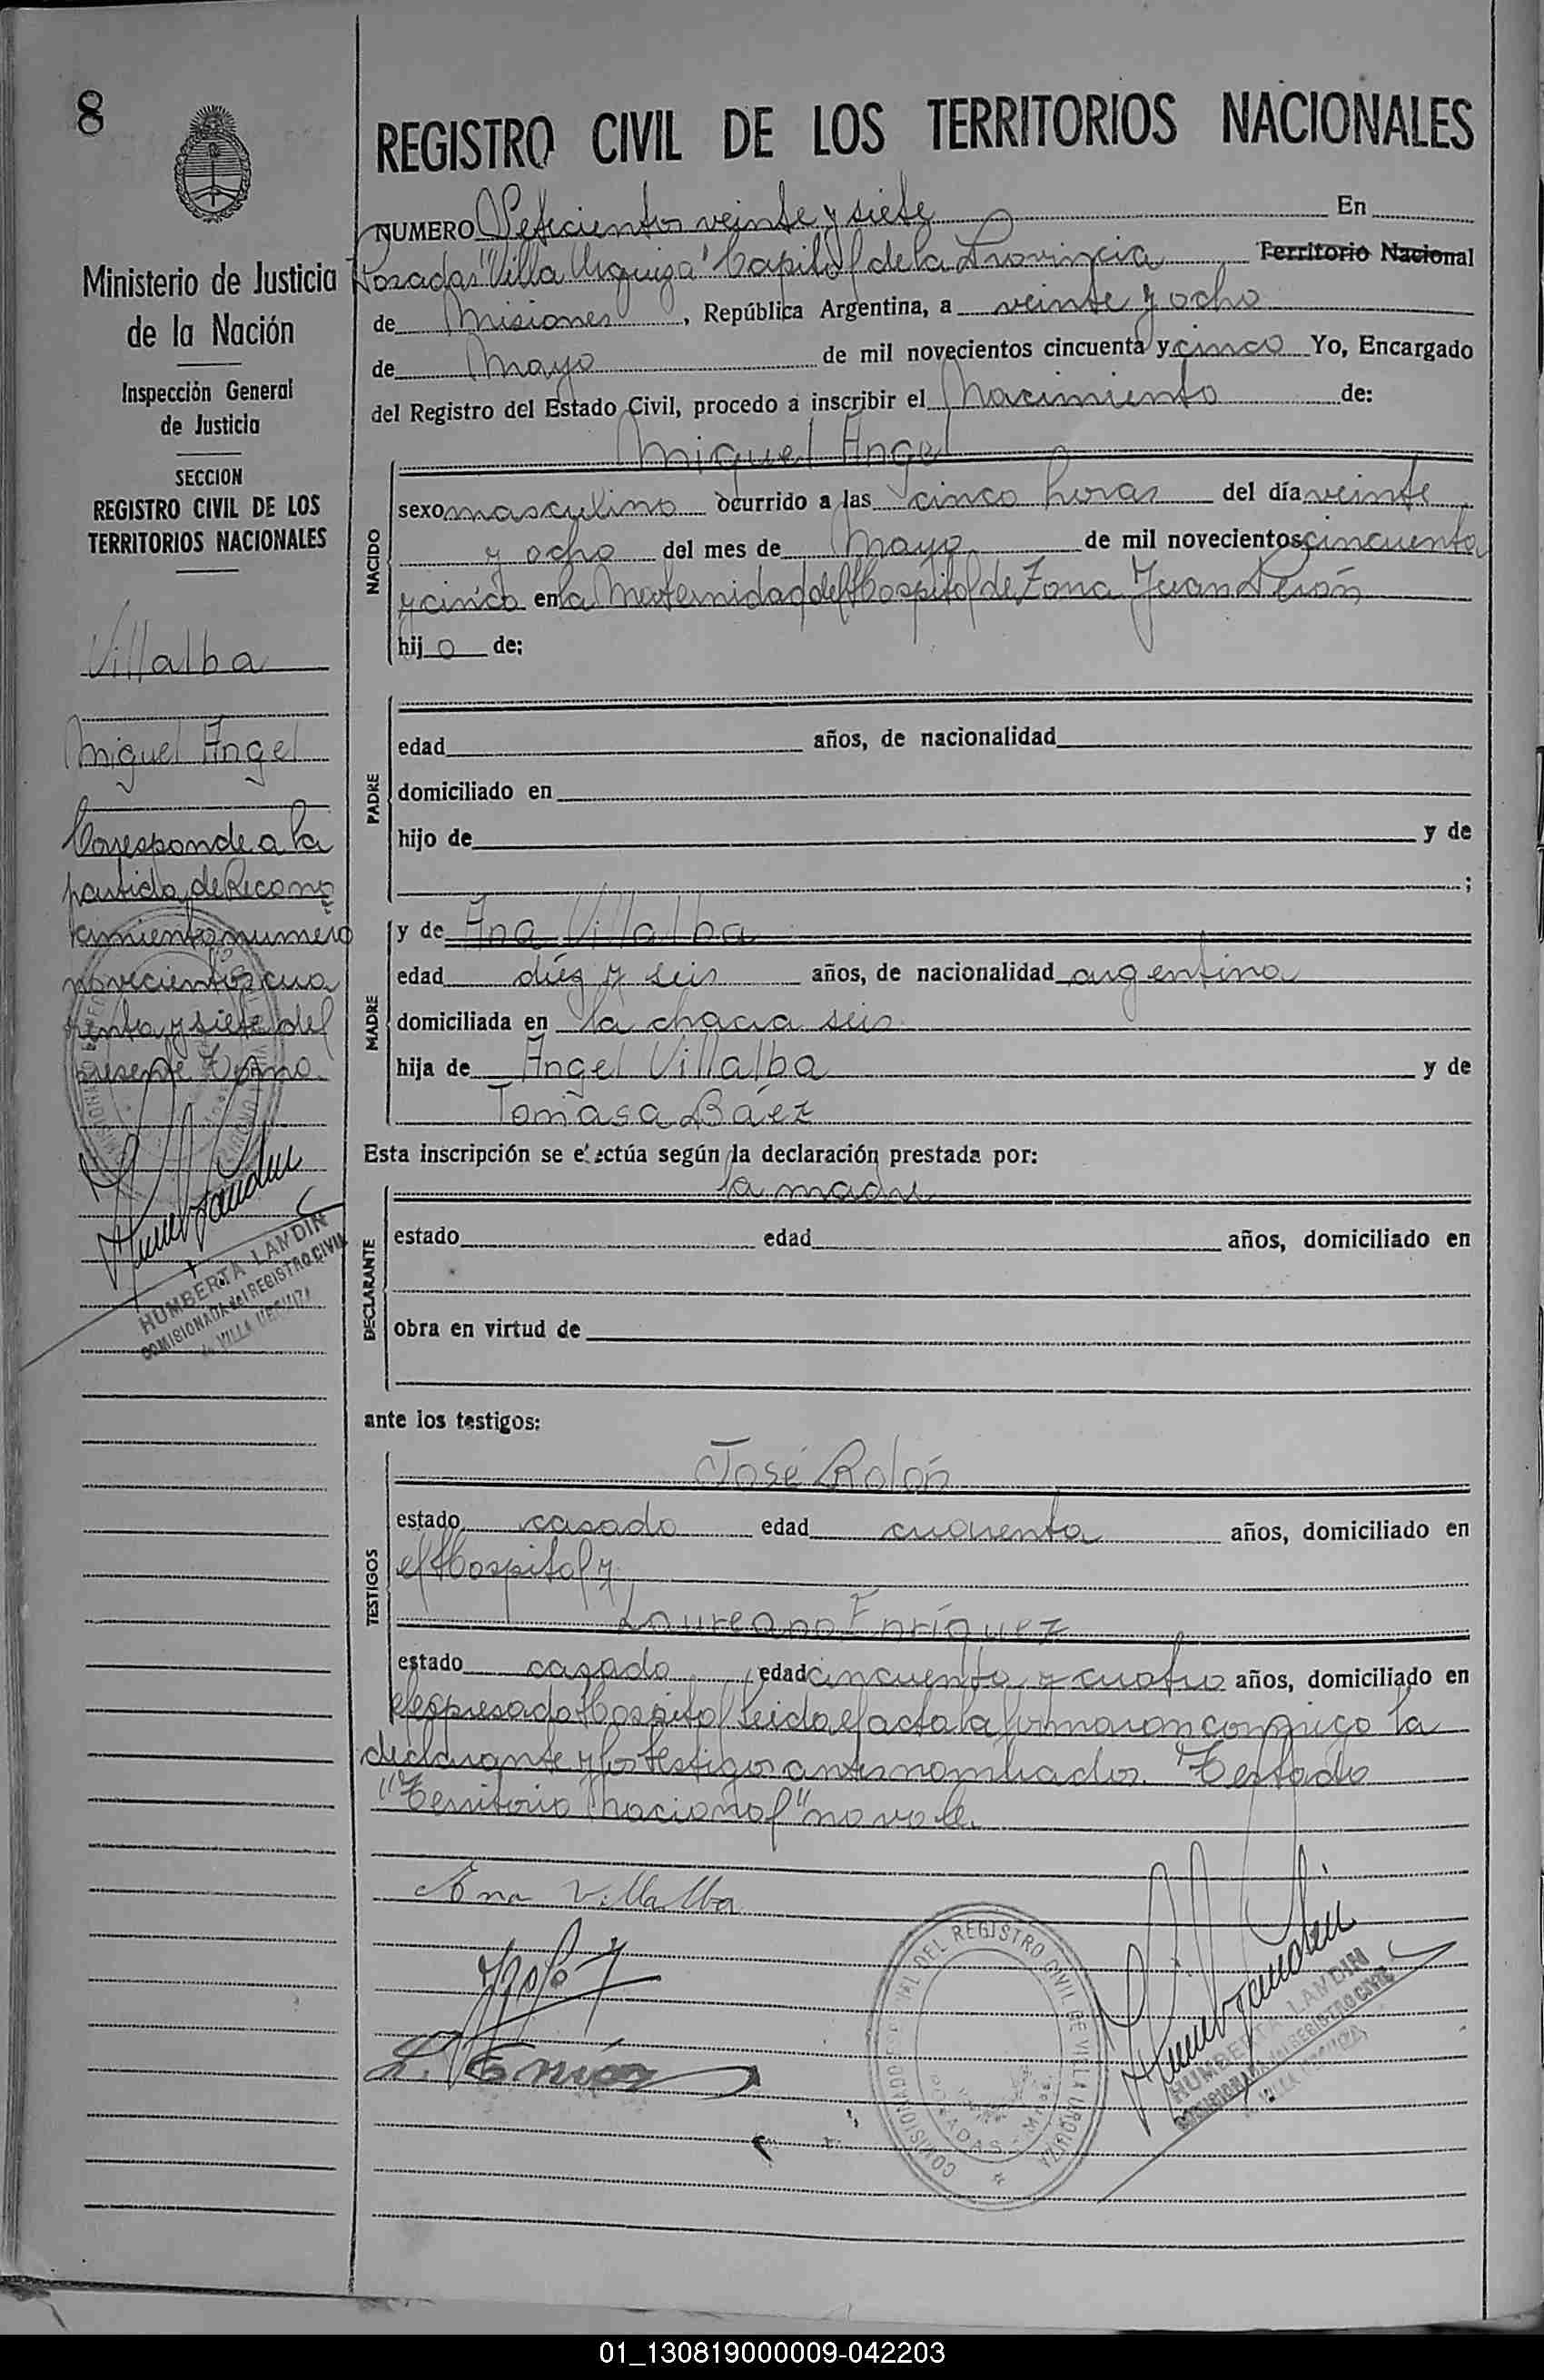 8
Ministerio de Justicia
de la Nación
Inspección General
de Justicia
SECCION
REGISTRO CIVIL DE LOS
TERRITORIOS NACIONALES
Villalba
Miguel Angel
Corresponde a la
partida de Recono
cimiento numero
novecientos cua
renta y siete del
presente Tomo.
HUMBERTA LANDIN
COMISIONADA del REGISTRO CIVIL
de VILLA URQUIZA
REGISTRO CIVIL DE LOS TERRITORIOS NACIONALES
NUMERO Setecientos veinte y siete En
Posadas "Villa Urquiza" Capital de la Provincia Territorio Nacional
de Misiones, República Argentina, a veinte y ocho
de Mayo de mil novecientos cincuenta y cinco Yo, Encargado
del Registro del Estado Civil, procedo a inscribir el Nacimiento de:
Miguel Angel
NACIDO
sexo masculino ocurrido a las cinco horas del día veinte
y ocho del mes de Mayo de mil novecientos cincuenta
y cinco en la Maternidad del Hospital de Zona Juan Perón
hijo de:
PADRE
edad años, de nacionalidad
domiciliado en
hijo de y de
;
MADRE
y de Ana Villalba
edad diéz y seis años, de nacionalidad argentina
domiciliada en la chacra seis
hija de Angel Villalba y de
Tomasa Báez
Esta inscripción se efectúa según la declaración prestada por:
la madre
DECLARANTE
estado edad años, domiciliado en
obra en virtud de
ante los testigos:
José Rolón
TESTIGOS
estado casado edad cuarenta años, domiciliado en
el Hospital y
Laureano Enríquez
estado casado edad cincuenta y cuatro años, domiciliado en
el expresado Hospital leida el acta la firmaron conmigo la
declarante y los testigos antes nombrados. Testado
"Territorio Nacional" no vale.
Ana Villalba
COMISIONADO DEL REGISTRO CIVIL DE VILLA URQUIZA
POSADAS - Mnes.
HUMBERTA LANDIN
COMISIONADA del REGISTRO CIVIL
de VILLA URQUIZA
01_130819000009-042203